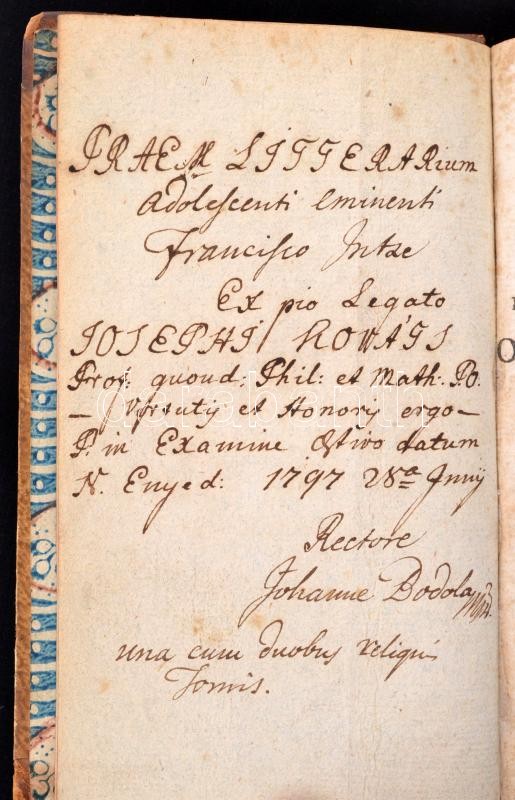 PRAEM LITTERARium
adolescenti eminenti
Francisco Intze
Ex pio Legato
IOSEPHI KOWÁTS
Prof: quond: Phil: et Math: P.O.
— Virtutis et Honoris ergo —
P. in Examine Æstivo datum
N. Enyed: 1797 28ª Junij
Rectore
Johanne Dodola
una cum duobus reliquis
Tomis.